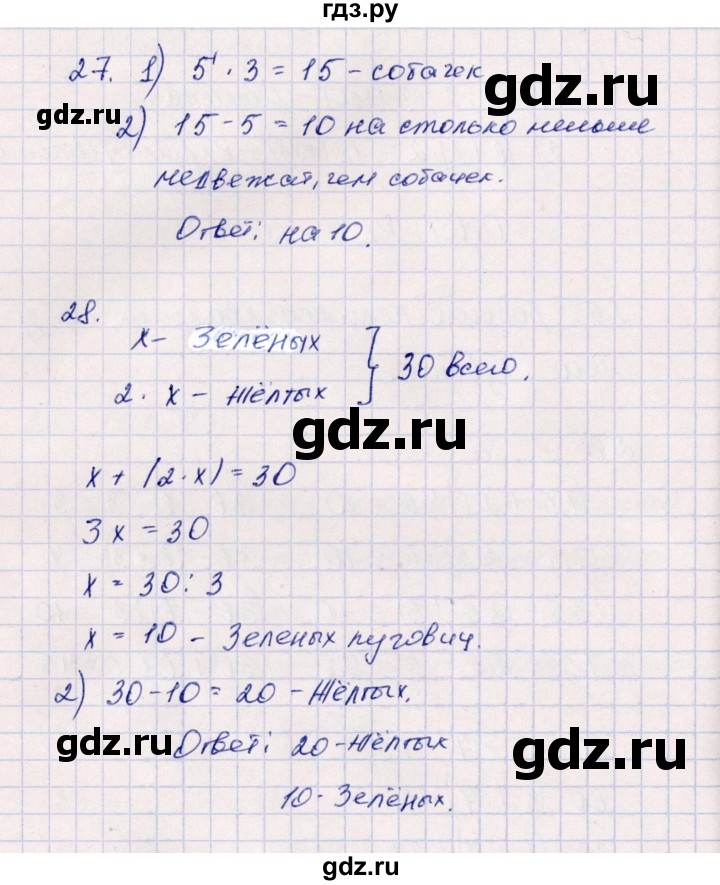 гдз.ру
27. 1) 5 · 3 = 15 - собачек
gdz.ru
gdz.ru
2) 15 - 5 = 10 на столько меньше
медвежат, чем собачек.
Ответ: на 10.
28.
x - Зелёных
2 · x - Жёлтых
30 всего.
gdz.ru
x + (2 · x) = 30
3x = 30
gdz.ru
x = 30 : 3
x = 10 - Зеленых пуговиц.
2) 30 - 10 = 20 - Жёлтых.
gdz.ru
Ответ: 20 - Жёлтых
gdz.ru
10 - Зелёных.
gdz.ru